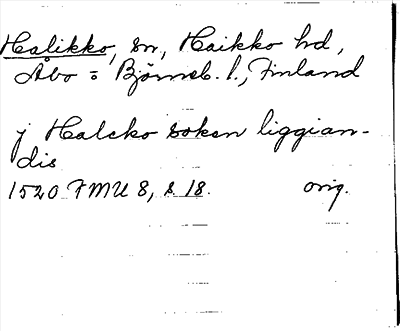 Halikko, sn, Haikko hd,
Åbo o Björneb. l., Finland
j Halcko soken liggian-
dis
1520 FMU 8, s 18. orig.